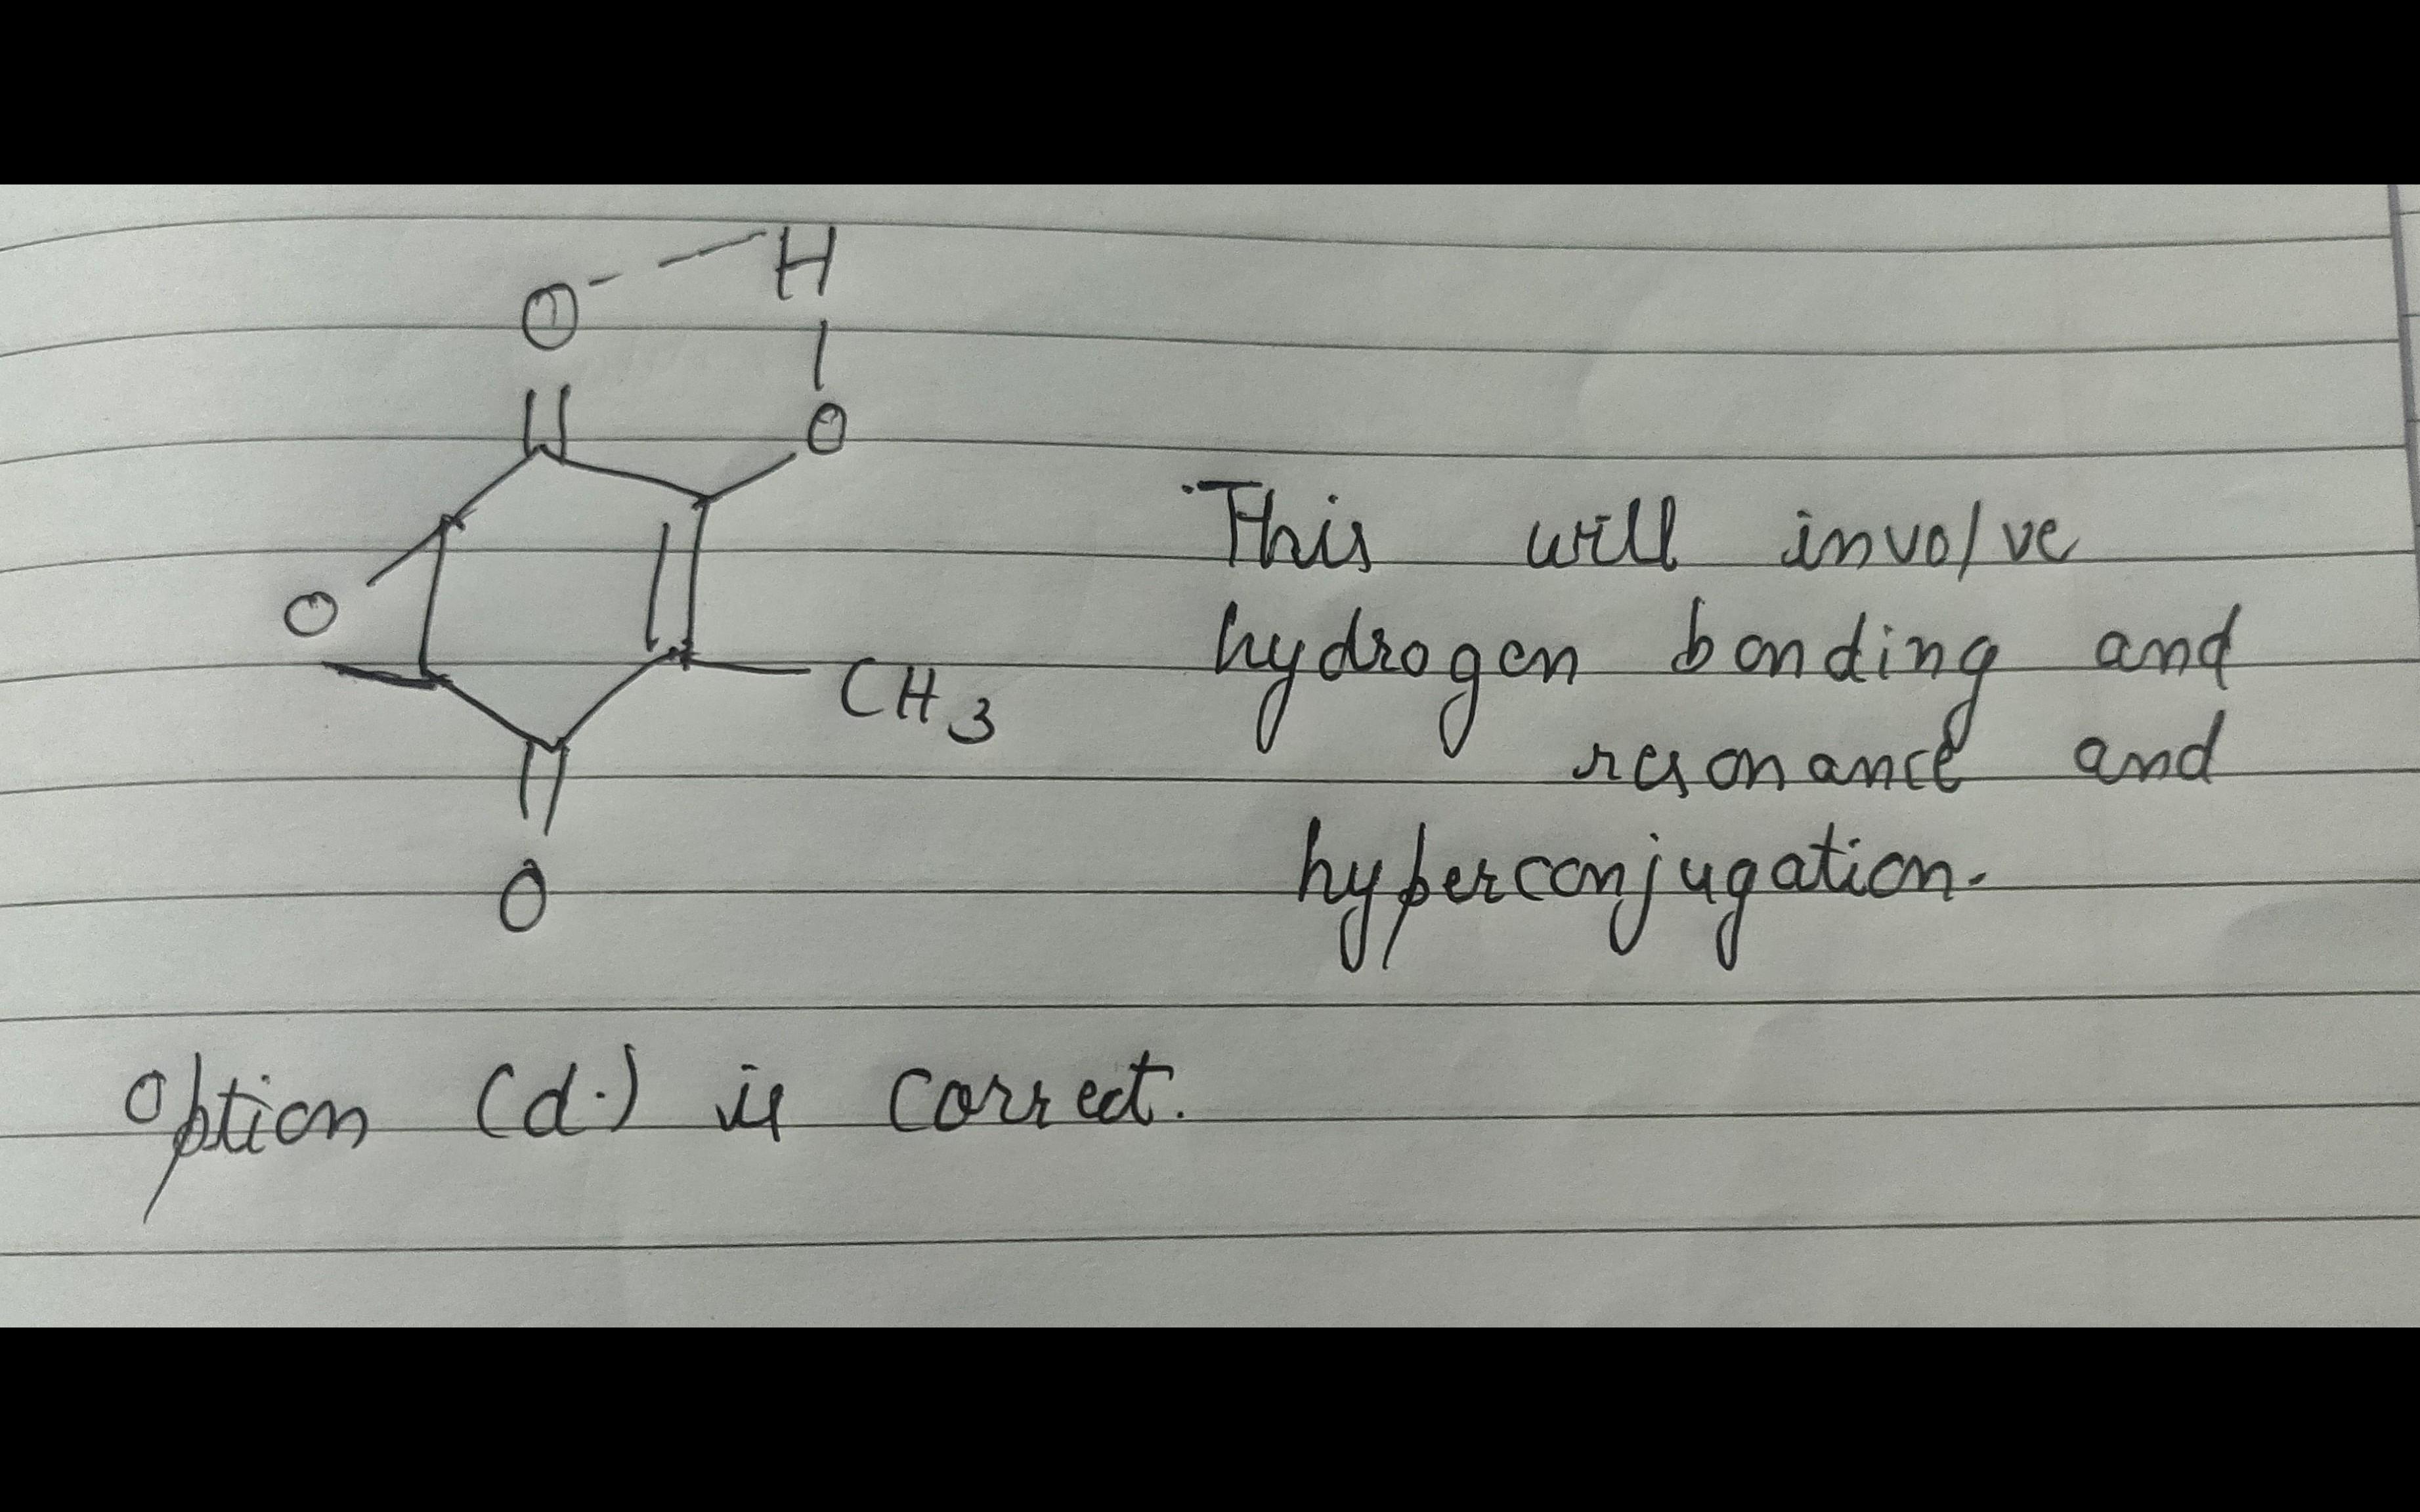 O H
O
O
CH3
O
This will involve
hydrogen bonding and
resonance and
hyperconjugation.
Option (d.) is correct.